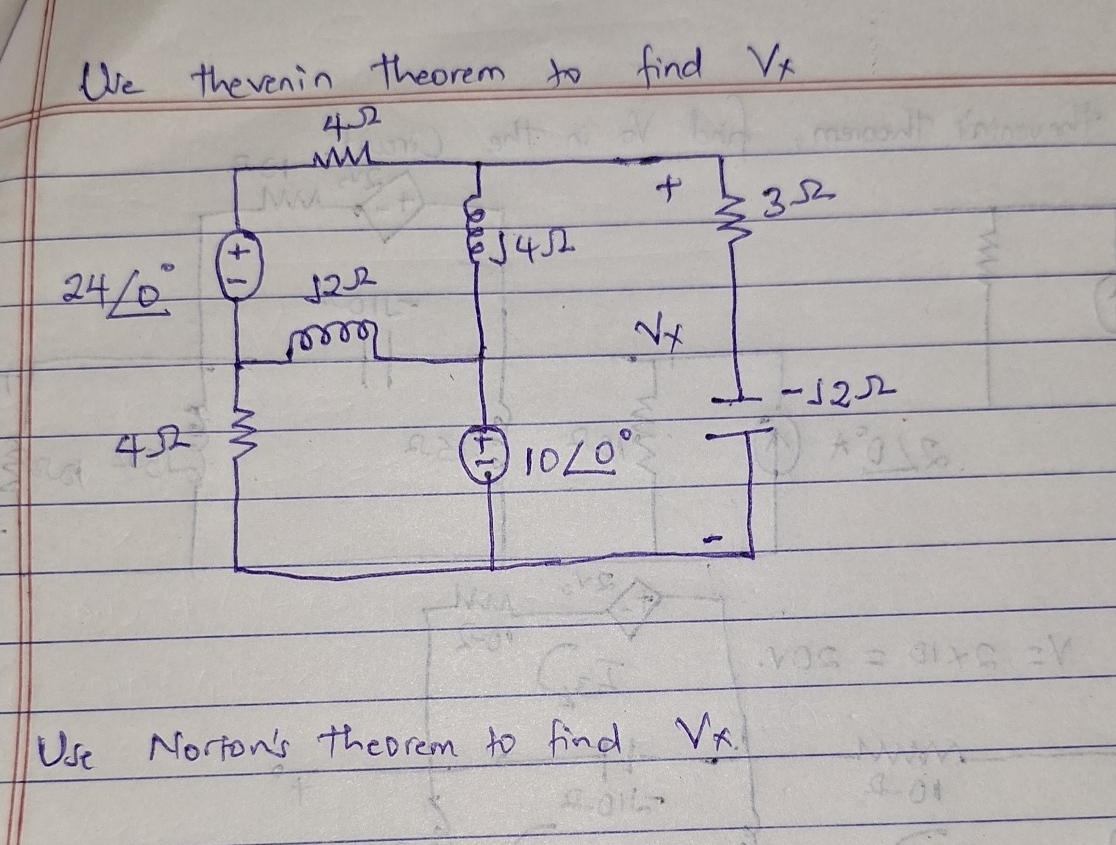 Use thevenin theorem to find Vx
4Ω
+
3Ω
+
-
24∠0°
j4Ω
j2Ω
Vx
-j2Ω
4Ω
+
-
10∠0°
-
Use Norton's theorem to find Vx.